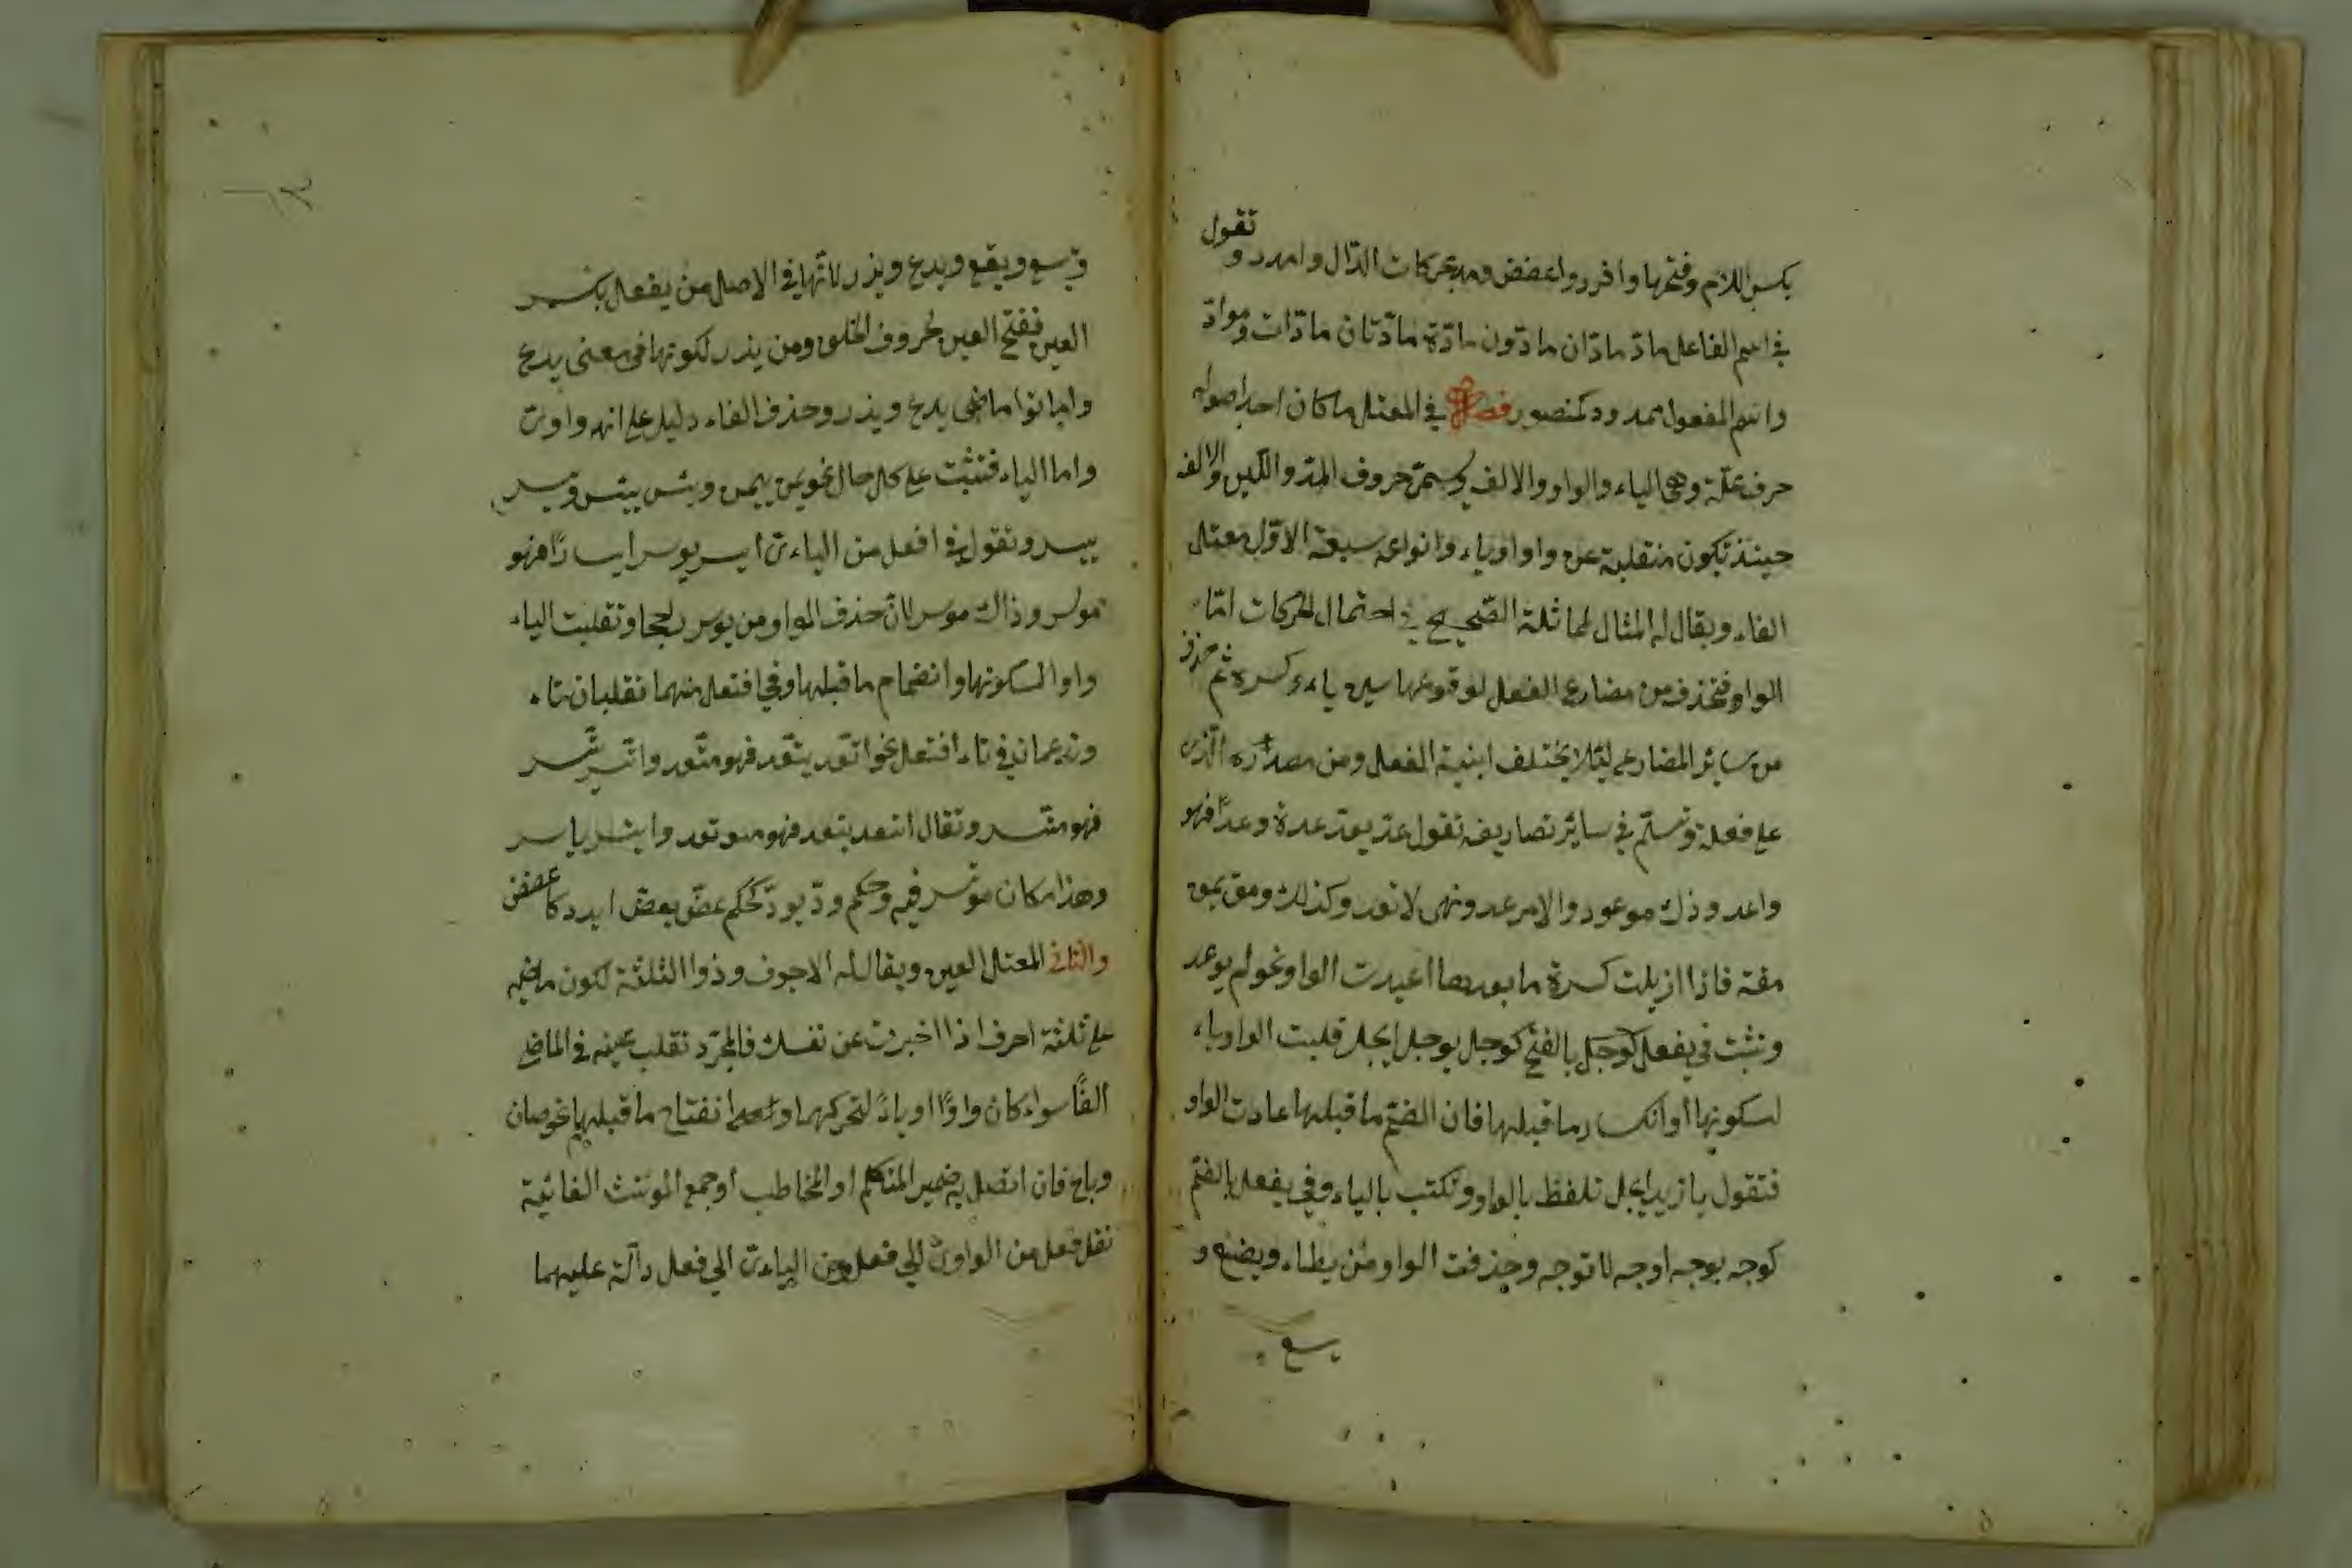 بكسر اللام وفتحها وافرر واعضض ومد بحركات الدّال وامدد و تقول
في اسم الفاعل مادّ مادّان مادّون مادّة مادّتان مادّات وموادّ
واسم المفعول ممدود كمنصور فصل في المعتل ما كان احد اصوله
حرف علّة وهي الياء والواو والالف ويسمّى حروف المدّ واللّين والالف
حينئذ تكون منقلبة عن واو او ياء وانواعه سبعة الاوّل معتل
الفاء ويقال له المثال لمماثلة الصّحيح في احتمال الحركات امّا
الواو فتحذف من مضارع الفعل لوقوعها بين ياء وكسرة ثم حذف
من سائر المضارع لئلا يختلف ابنية الفعل ومن مصدره الّذي
على فعلة وتسلم في سائر تصاريفه تقول عد يعد عدة وعدًا فهو
واعد وذاك موعود والامر عد ونهى لا تعد وكذلك ومق يمق
مقة فاذا ازيلت كسرة ما بعدها اعيدت الواو نحو لم يوعد
وتثبت في يفعل كوجل بالفتح كوجل يوجل ايجل قلبت الواو ياء
لسكونها وانكسار ما قبلها فان انضم ما قبلها عادت الواو
فتقول يا زيد ايجل تلفظ بالواو وتكتب بالياء وفي يفعل بالضم
كوجه يوجه اوجه لا توجه وحذفت الواو من يطاء ويضع و
يسع
ويسع ويقع ويدع ويذر لانّها في الاصل من يفعل بكسر
العين ففتح العين لحروف الحلق ومن يذر لكونها في معنى يدع
واماتوا ماضى يدع ويذر وحذف الفاء دليل على انه واوىّ
واما الياء فتثبت على كل حال نحو يمن ييمن ويئس ييئس ويسر
ييسر وتقول في افعل من الياءىّ ايسر يوسر ايسارًا فهو
موسر وذاك موسر لانّ حذف الواو من يوسر وتقلبت الياء
واوا لسكونها وانضمام ما قبلها وفي افتعل منهما تقلبان تاء
وتدغمان في تاء افتعل نحو اتّعد يتّعد فهو متّعد واتّسر يتّسر
فهو متّسر وتقال ايتعد يتعد فهو موتعد وايتسر ياتسر
وهذا مكان موتسر فيه وحكم ودّ يودّ كحكم عضّ يعضّ ايدد كاعضض
والثاني المعتل العين ويقال له الاجوف وذو الثلثة لكون ماضيه
على ثلثة احرف اذا اخبرت عن نفسك فالمجرّد تقلب عينه في الماضي
الفًا سواء كان واوًا او ياءً لتحركهما وانفتاح ما قبلهما نحو صان
وباع فان اتصل به ضمير المتكلم او المخاطب او جمع المونث الغائبة
نقل فعل من الواوىّ الى فعل ومن الياءىّ الى فعل دالّة عليهما